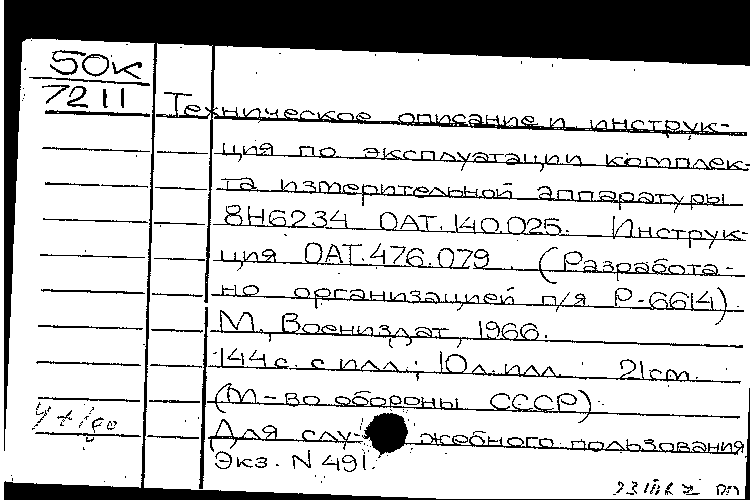 50к
7211
Техническое описание и инструк-
ция по эксплуатации комплек-
та измерительной аппаратуры
8Н6234 ОАТ.140.025. Инструк-
ция ОАТ.476.079. (Разработа-
но организацией п/я Р-6614)
М., Воениздат, 1966.
144 с. с илл.; 10 л. илл. 21 cm.
(М-во обороны СССР)
Для служебного пользования
Экз. N 491.